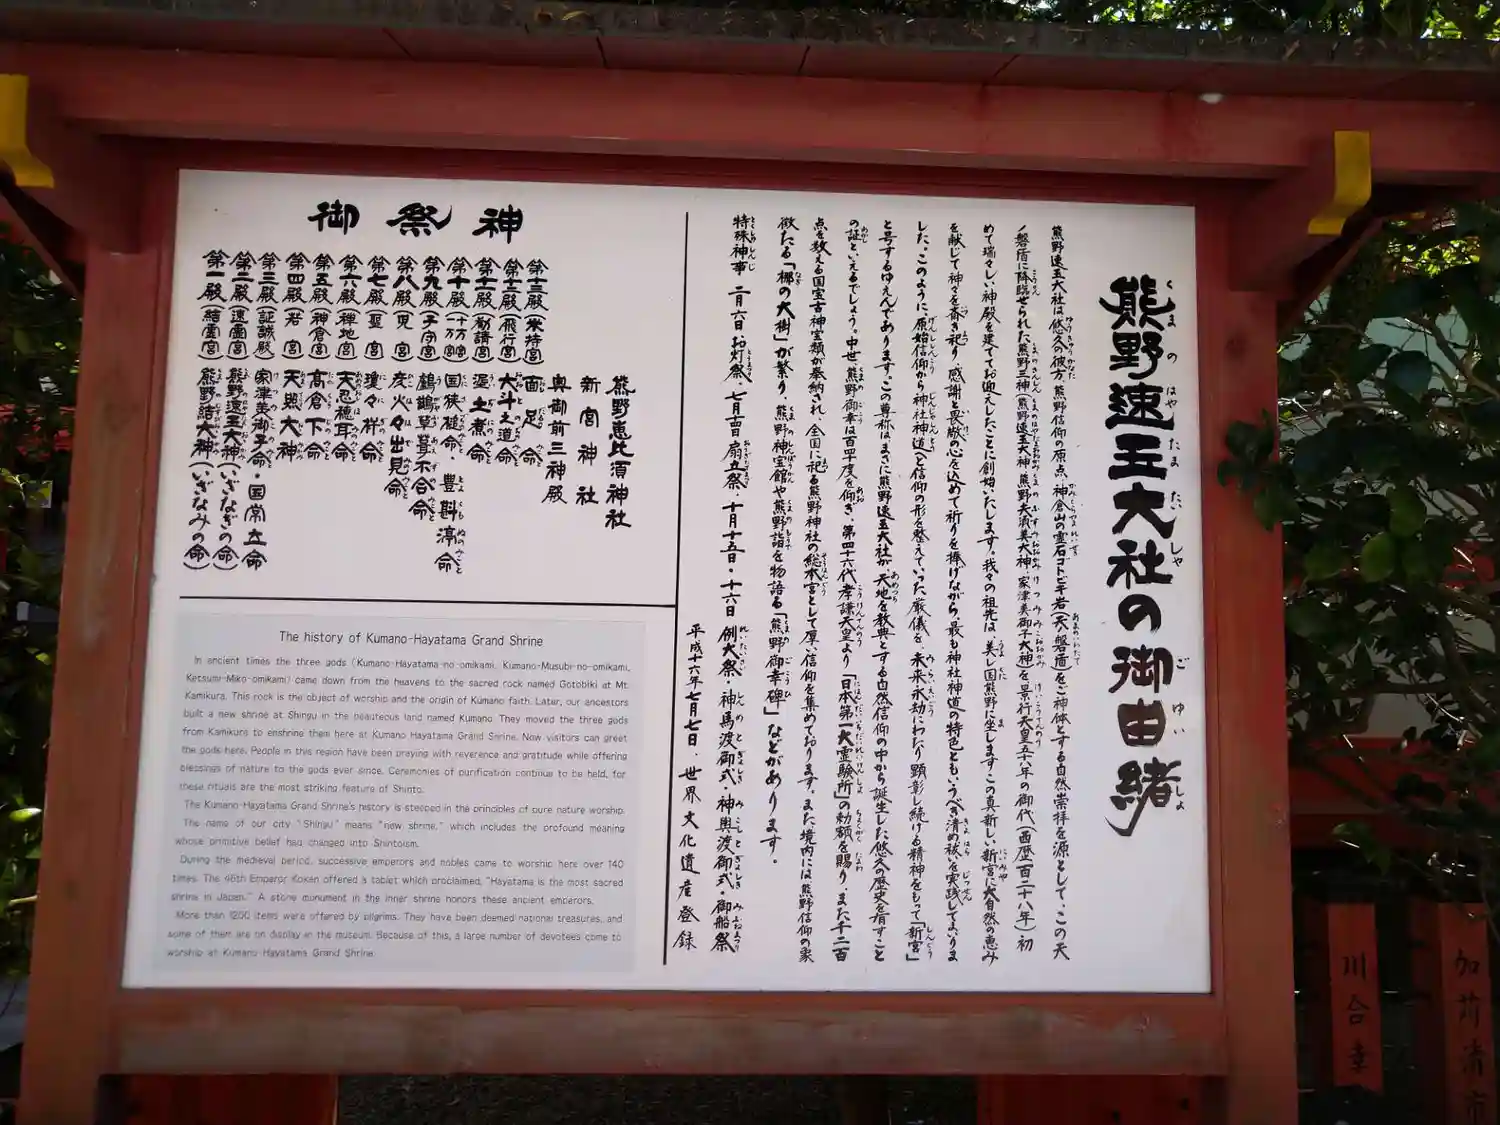 熊野速玉大社の御由緒
熊野速玉大社は悠久の彼方、熊野信仰の原点、神倉山の霊石ゴトビキ岩(天ノ磐盾)をご神体とする自然崇拝を源として、この天
ノ磐盾に降臨せられた熊野三神(熊野速玉大神・熊野夫須美大神・家津美御子大神)を景行天皇五十八年の御代(西歴一百二十八年)初
めて瑞々しい神殿を建ててお迎えしたことに創始いたします。我々の祖先は、美し国熊野に坐しますこの真新しい新宮に大自然の恵み
を献じて神々を斎き祀り、感謝と畏敬の心を込めて祈りを捧げながら、最も神社神道の特色ともいうべき清め祓いを実践してまいりま
した。このように、原始信仰から神社神道へと信仰の形を整えていった厳儀を、未来永劫にわたり顕彰し続ける精神をもって「新宮」
と号するゆえんであります。この尊称はまさに熊野速玉大社が、天地を教典とする自然信仰の中から誕生した悠久の歴史を有すこと
の証といえるでしょう。中世、熊野御幸は百四十度を仰ぎ、第四十六代孝謙天皇より「日本第一大霊験所」の勅額を賜り、また千二百
点を数える国宝古神宝類が奉納され、全国に祀る熊野神社の総本宮として厚い信仰を集めております。また境内には熊野信仰の象
徴たる「梛の大樹」が繁り、熊野神宝館や熊野詣を物語る「熊野御幸碑」などがあります。
特殊神事 二月六日お灯祭・七月十四日扇立祭・十月十五日・十六日例大祭・神馬渡御式・神輿渡御式・御船祭
平成十六年七月七日・世界文化遺産登録
御祭神
熊野恵比須神社
新宮神社
奥御前三神殿
第十三殿(米持宮)面足命
第十二殿(飛行宮)大斗之道命
第十一殿(勧請宮)渥土煮命
第十殿(十万宮)国狭槌命・豊斟渟命
第九殿(子守宮)鸕鶿草葺不合命
第八殿(児宮)彦火々出見命
第七殿(聖宮)瓊々杵命
第六殿(禅地宮)天忍穂耳命
第五殿(神倉宮)高倉下命
第四殿(若宮)天照大神
第三殿(証誠殿)家津美御子命・国常立命
第二殿(速玉宮)熊野速玉大神(いざなぎの命)
第一殿(結霊宮)熊野結大神(いざなみの命)
The history of Kumano-Hayatama Grand Shrine
In ancient times the three gods (Kumano-Hayatama-no-omikami, Kumano-Musubi-no-omikami,
Ketsumi-Miko-omikami) came down from the heavens to the sacred rock named Gotobiki at Mt.
Kamikura. This rock is the object of worship and the origin of Kumano faith. Later, our ancestors
built a new shrine at Shingu in the beauteous land named Kumano. They moved the three gods
from Kamikura to enshrine them here at Kumano Hayatama Grand Shrine. Now visitors can greet
the gods here. People in this region have been praying with reverence and gratitude while offering
blessings of nature to the gods ever since. Ceremonies of purification continue to be held, for
these rituals are the most striking feature of Shinto.
The Kumano-Hayatama Grand Shrine's history is steeped in the principles of pure nature worship.
The name of our city "Shingu" means "new shrine," which includes the profound meaning
whose primitive belief had changed into Shintoism.
During the medieval period, successive emperors and nobles came to worship here over 140
times. The 46th Emperor Koken offered a tablet which proclaimed, "Hayatama is the most sacred
shrine in Japan." A stone monument in the inner shrine honors these ancient emperors.
More than 1200 items were offered by pilgrims. They have been deemed national treasures, and
some of them are on display in the museum. Because of this, a large number of devotees come to
worship at Kumano Hayatama Grand Shrine.
川合幸
加苅清市